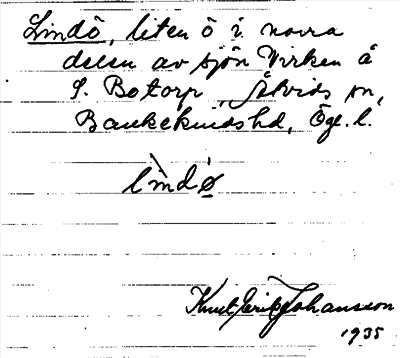 Lindö, liten ö i norra
delen av sjön Virken å
S. Botorp, Åtvids sn,
Bankekinds hd, Ögl. l.
lìndǿ
Knut Erik Johansson
1935